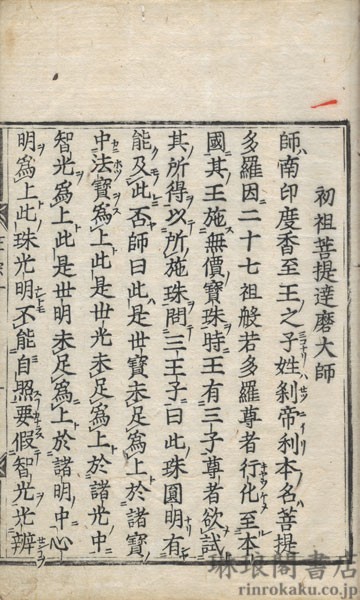 初祖菩提達磨大師
師南印度香至王之子姓刹帝利本名菩提
多羅因二十七祖般若多羅尊者行化至本
國其王施無價寶珠時王有三子尊者欲試
其所得以所施珠問三王子曰此珠圓明有
能及此否師曰此是世寶未足爲上於諸寶
中法寶爲上此是世光未足爲上於諸光中
智光爲上此是世明未足爲上於諸明中心
明爲上此珠光明不能自照要假智光光辨
琳琅閣書店
rinrokaku.co.jp